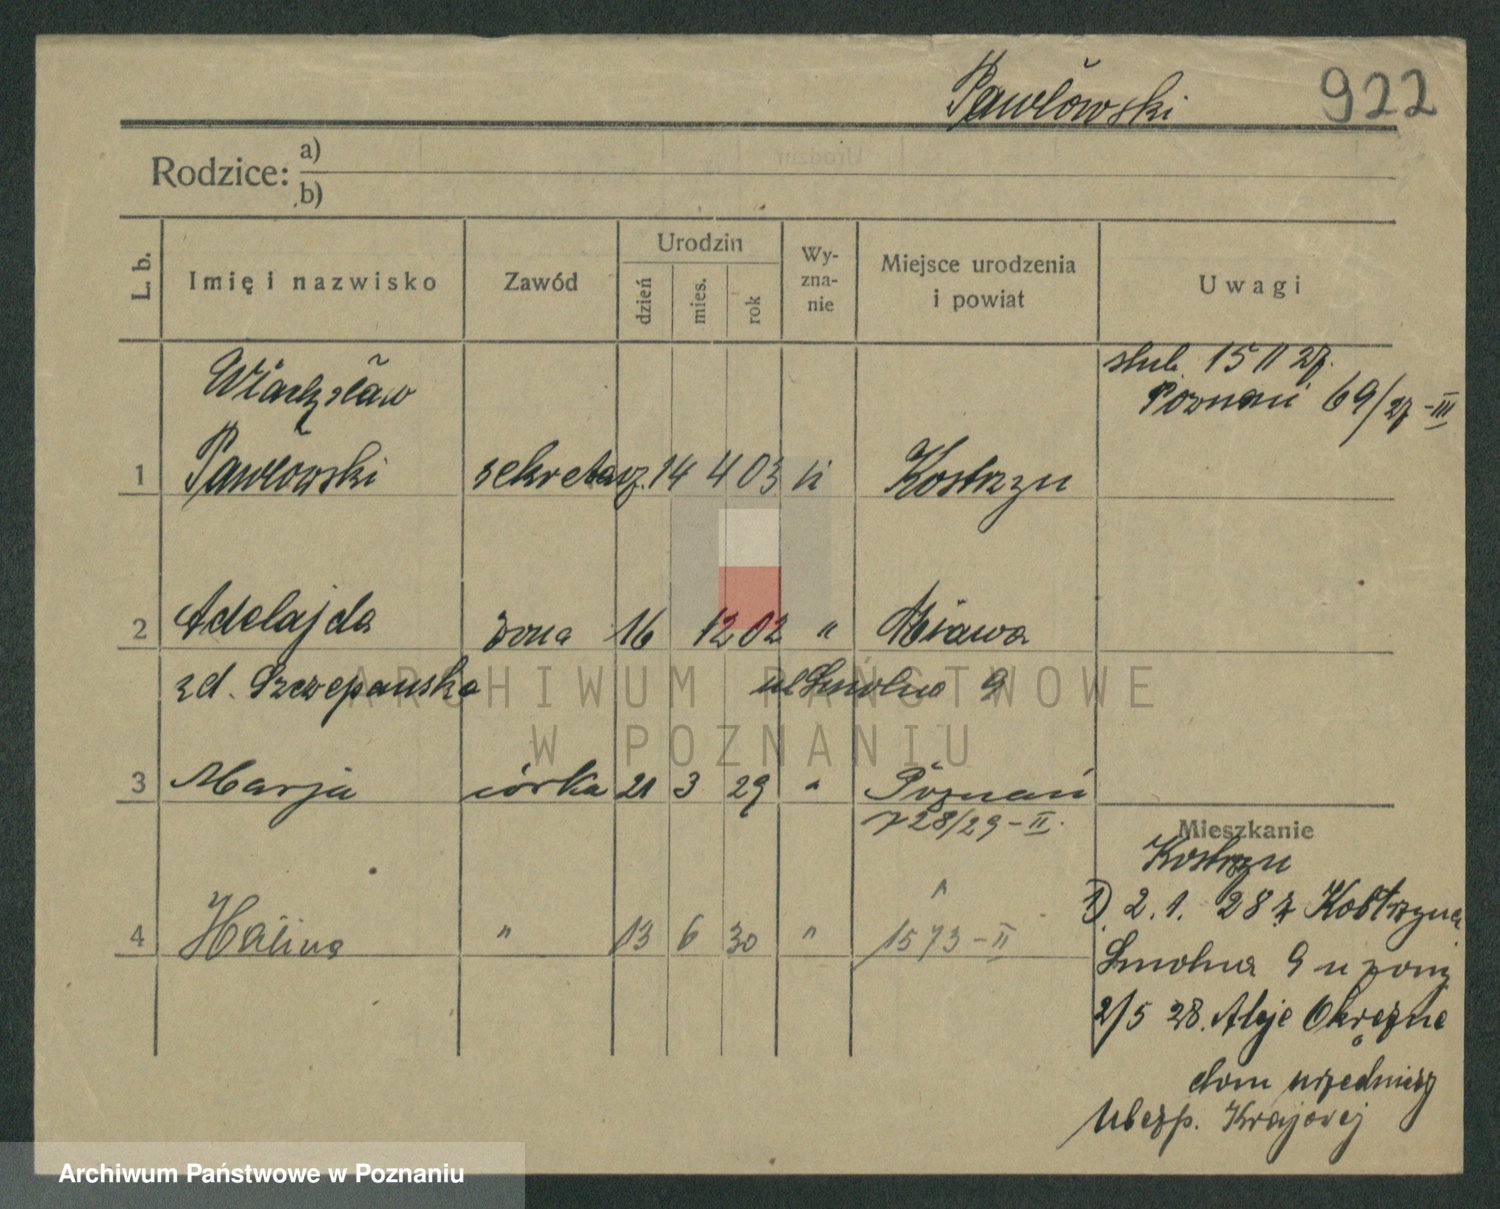 Pawłowski 922
Rodzice: a)
b)
L. b. Imię i nazwisko Zawód Urodzin dzień mies. rok Wy-zna-nie Miejsce urodzenia i powiat Uwagi
ślub. 15 II 27.
Poznań 69/27-III
Władysław
1 Pawłowski sekretarz. 14 4 03 k Kostrzyn
2 Adelajda żona 16 12 02 " Mława
zd. Szczepańska ul Smolna 9
3 Marja córka 21 3 29 " Poznań
728/29-II.
4 Halina " 13 6 30 " "
1573-II
Mieszkanie
Kostrzyn
1) 2.1. 28 z Kostrzyna
Smolna 9 u żony
2/5 28. Aleje Okrężne
dom urzędniczy
Ubezp. Krajowej
ARCHIWUM PAŃSTWOWE
W POZNANIU
Archiwum Państwowe w Poznaniu